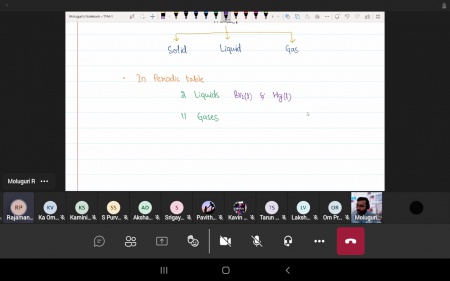 Solid Liquid Gas
In Periodic table
2 Liquids Br₂(l) & Hg(l)
11 Gases
Moluguri R
RP KV KS SS AD S TS LV OR
Rajaman... Ka Om... Kamini... S Purv... Aksha... Srigay... Pavith... Kavin ... Tarun ... Laksh... Om Pr... Moluguri...